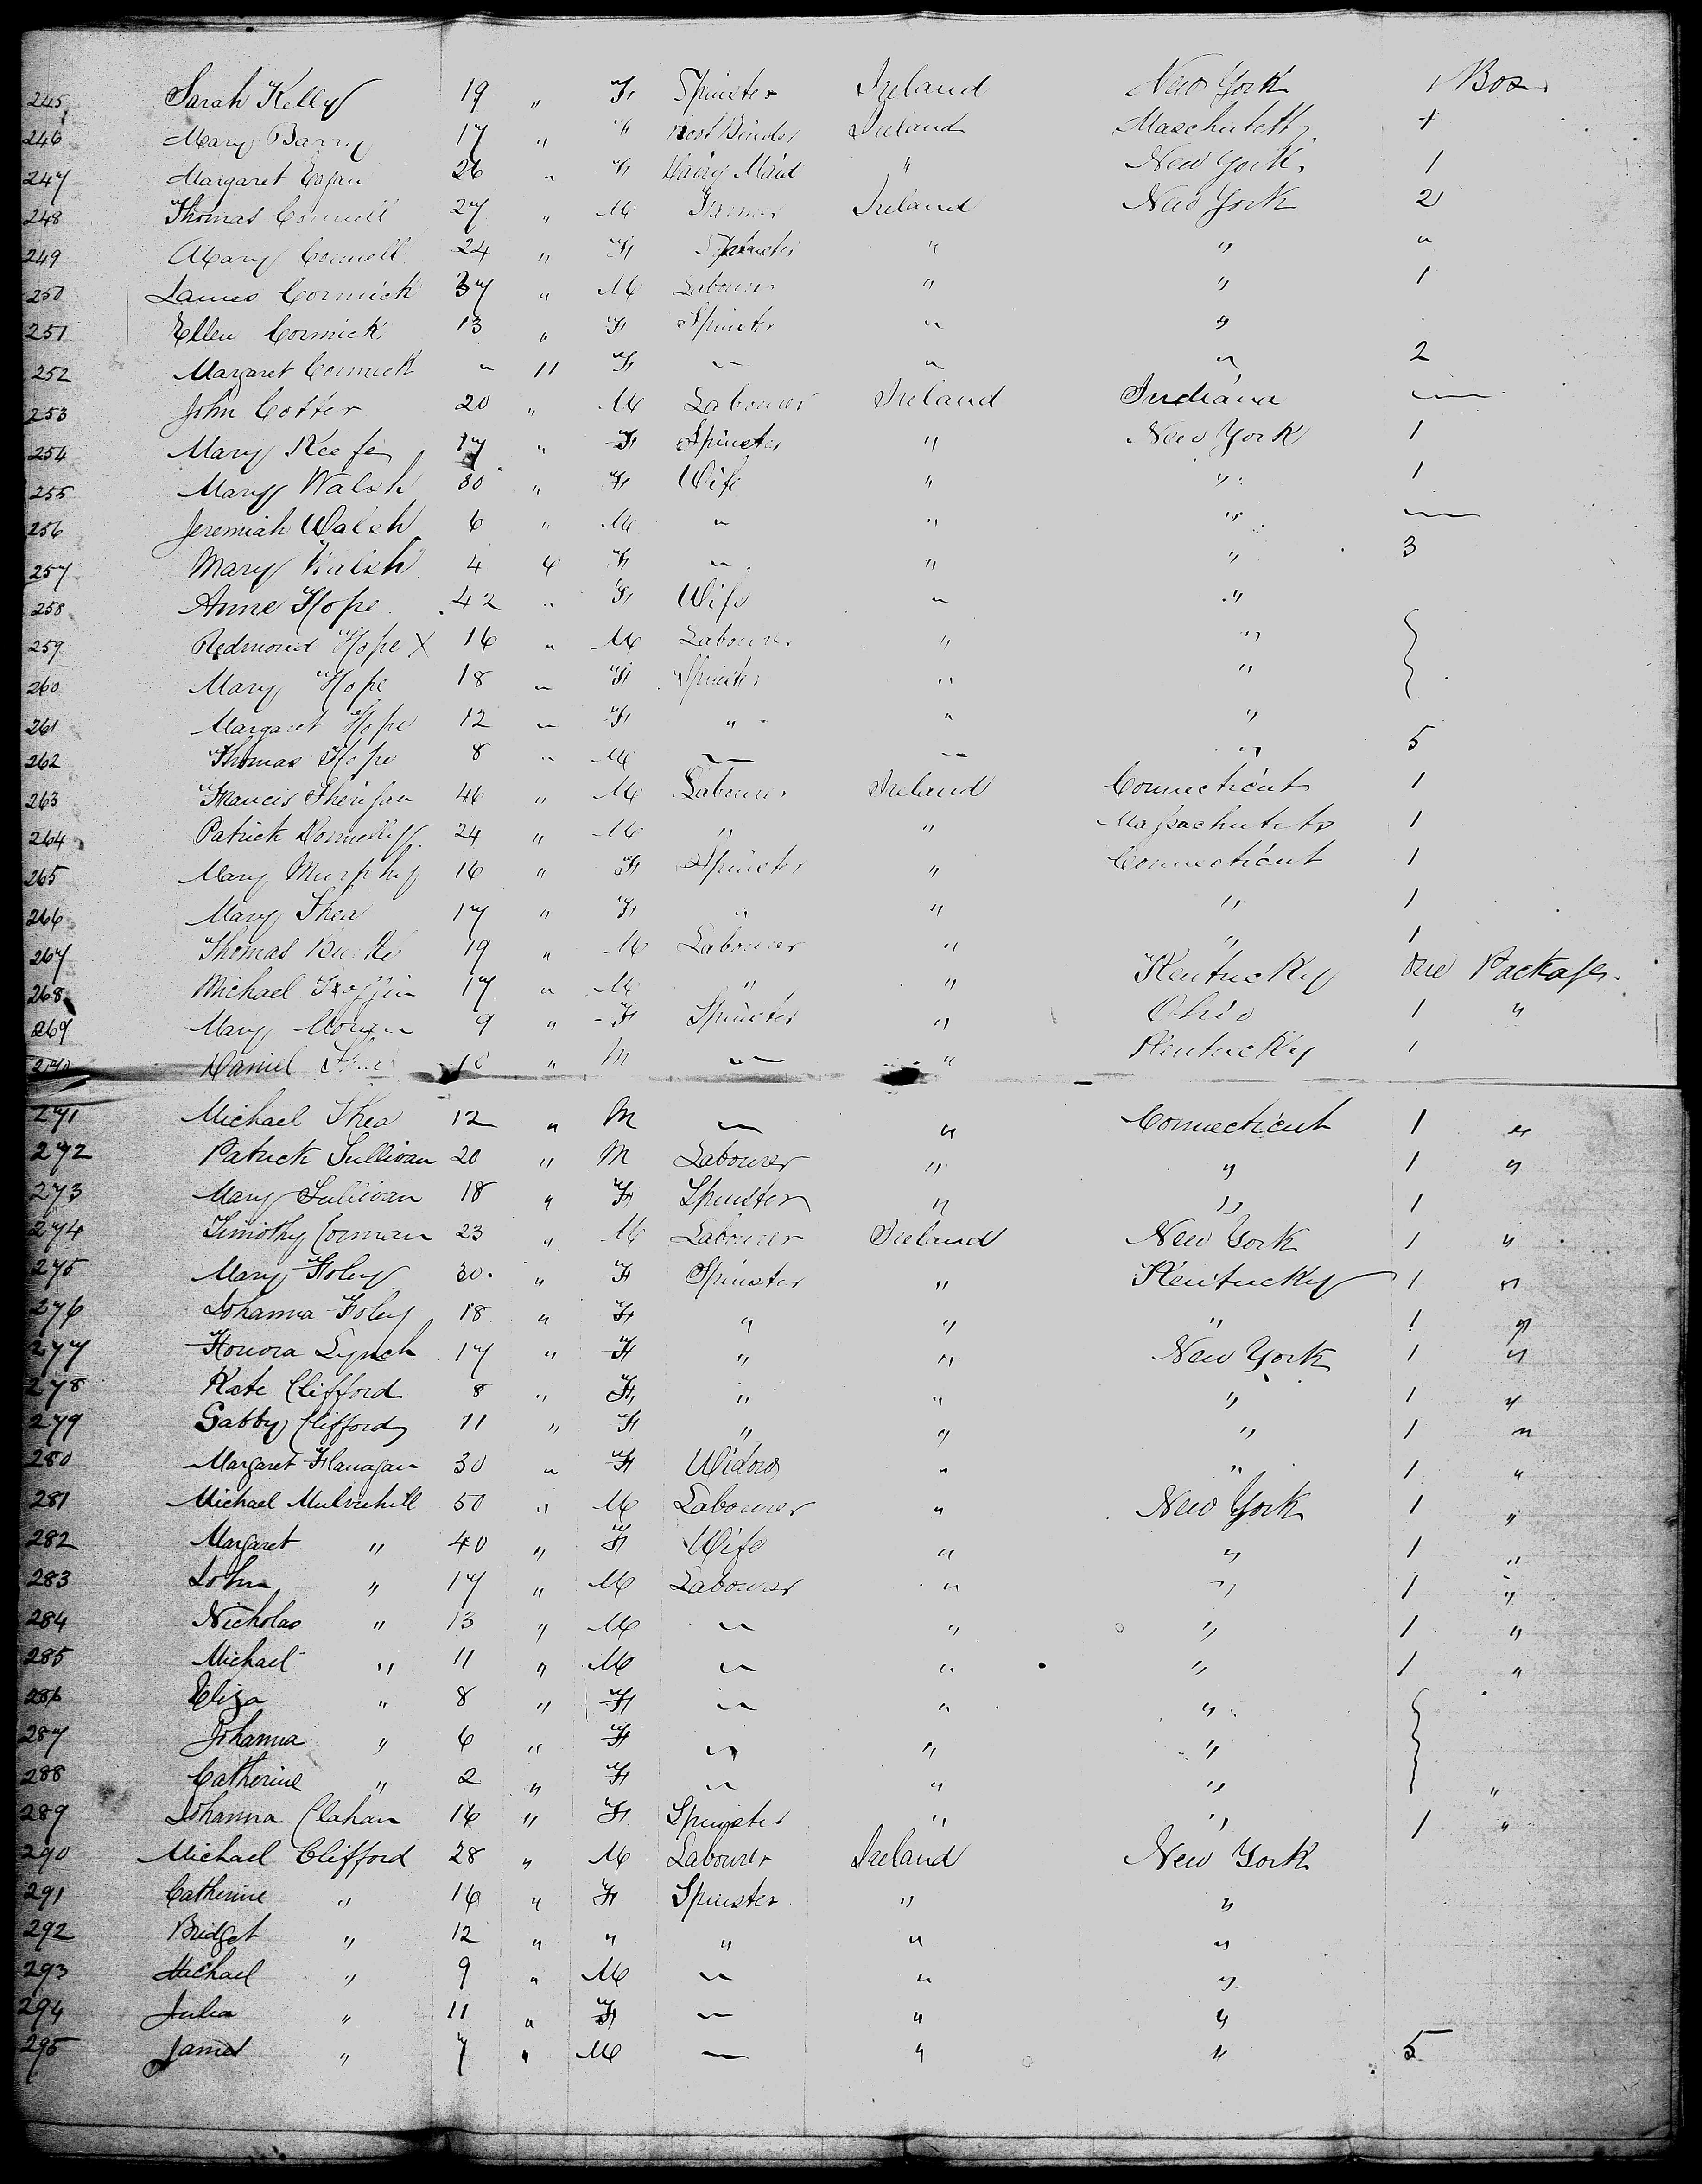 245 Sarah Kelly 19 " F Spinster Ireland New York 1 Box
246 Mary Barry 17 " " Boot Binder Ireland Maschutetts 1
247 Margaret Eagan 26 " F Dairy Maid " New York 1
248 Thomas Connell 27 " M Farmer Ireland New York 2
249 Mary Connell 24 " F Spinster " " "
250 James Cormick 37 " M Labourer " " 1
251 Ellen Cormick 13 " F Spinster " "
252 Margaret Cormick " 11 F " " " 2
253 John Cotter 20 " M Labourer Ireland Indiana —
254 Mary Keefe 17 " F Spinster " New York 1
255 Mary Walsh 30 " F Wife " " 1
256 Jeremiah Walsh 6 " M " " " —
257 Mary Walsh 4 4 F " " " 3
258 Anne Hope 42 " F Wife " "
259 Redmond Hope X 16 " M Labourer " "
260 Mary Hope 18 " F Spinster " "
261 Margaret Hope 12 " F " " "
262 Thomas Hope 8 " M — — " 5
263 Francis Sherifan 46 " M Labourer Ireland Connecticut 1
264 Patrick Donnelly 24 " M " " Massachutets 1
265 Mary Murphy 16 " F Spinster " Connecticut 1
266 Mary Shea 17 " F " " " 1
267 Thomas Burke 19 " M Labourer " " 1
268 Michael 17 " M " " Kentucky One Package
269 Mary Moran 9 " F Spinster " Ohio 1 "
270 Daniel Shea " M — " Kentucky 1
271 Michael Shea 12 " M — " Connecticut 1 "
272 Patrick Sullivan 20 " M Labourer " " 1 "
273 Mary Sullivan 18 " F Spinster " " 1
274 Timothy Corman 23 " M Labourer Ireland New York 1 "
275 Mary Foley 30 " F Spinster " Kentucky 1 "
276 Johanna Foley 18 " F " " " 1 "
277 Honora Lynch 17 " F " " New York 1 "
278 Kate Clifford 8 " F " " " 1 "
279 Gabby Clifford 11 " F " " " 1 "
280 Margaret Flanagan 30 " F Widow " " 1 "
281 Michael Mulvehill 50 " M Labourer " New York 1 "
282 Margaret " 40 " F Wife " " 1 "
283 John " 17 " M Labourer " " 1 "
284 Nicholas " 13 " M — " " 1 "
285 Michael " 11 " M — " " 1 "
286 Eliza " 8 " F — " "
287 Johanna " 6 " F — " "
288 Catherine " 2 " F — " " "
289 Johanna Clahan 16 " F Spinster " " 1 "
290 Michael Clifford 28 " M Labourer Ireland New York
291 Catherine " 16 " F Spinster " "
292 Bridget " 12 " " " " "
293 Michael " 9 " M — " "
294 Julia " 11 " F — " "
295 James " 7 " M — " " 5